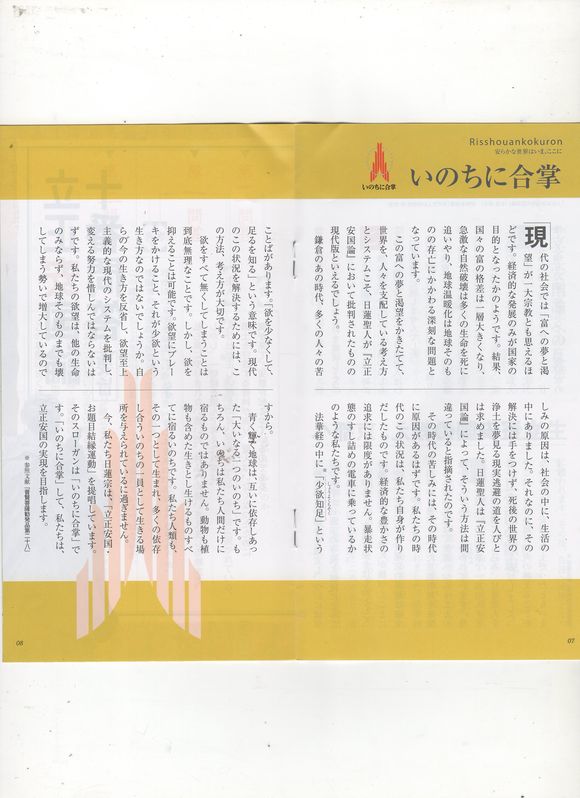 Risshouankokuron
安らかな世界はいま、ここに
いのちに合掌
いのちに合掌
現代の社会では「富への夢と渇
望」が一大宗教とも思えるほ
どです。経済的な発展のみが国家の
目的となったかのようです。結果、
国々の富の格差は一層大きくなり、
急激な自然破壊は多くの生命を死に
追いやり、地球温暖化は地球そのも
のの存亡にかかわる深刻な問題と
なっています。
この富への夢と渇望をかきたてて、
世界を、人々を支配している考え方
とシステムこそ、日蓮聖人が『立正
安国論』において批判されたものの
現代版といえるでしょう。
鎌倉のあの時代、多くの人々の苦
しみの原因は、社会の中に、生活の
中にありました。それなのに、その
解決には手をつけず、死後の世界の
浄土を夢見る現実逃避の道を人びと
は求めました。日蓮聖人は『立正安
国論』によって、そういう方法は間
違っていると指摘されたのです。
その時代の苦しみには、その時代
に原因があるはずです。私たちの時
代のこの状況は、私たち自身が作り
だしたものです。経済的な豊かさの
追求には限度がありません。暴走状
態のすし詰めの電車に乗っているか
のような私たちです。
法華経の中に※「少欲知足」という
07
ことばがあります。「欲を少なくして、
足るを知る」という意味です。現代
のこの状況を解決するためには、こ
の方法、考え方が大切です。
欲をすべて無くしてしまうことは
到底無理なことです。しかし、欲を
抑えることは可能です。欲望にブレー
キをかけること、それが少欲という
生き方なのではないでしょうか。自
らの今の生き方を反省し、欲望至上
主義的な現代のシステムを批判し、
変える努力を惜しんではならないは
ずです。私たちの欲望は、他の生命
のみならず、地球そのものまでも壊
してしまう勢いで増大しているので
すから。
青く輝く地球は、互いに依存しあっ
た「大いなる一つのいのち」です。も
ちろん、いのちは私たち人間だけに
宿るものではありません。動物も植
物も含めた生きとし生けるものすべ
てに宿るいのちです。私たち人類も、
その一つとして生まれ、多くの依存
し合ういのちの一員として生きる場
所を与えられているに過ぎません。
今、私たち日蓮宗は、「立正安国・
お題目結縁運動」を提唱しています。
そのスローガンは「いのちに合掌」で
す。「いのちに合掌」して、私たちは、
立正安国の実現を目指します。
※ 参照文献「普賢菩薩勧発品第二十八」
08